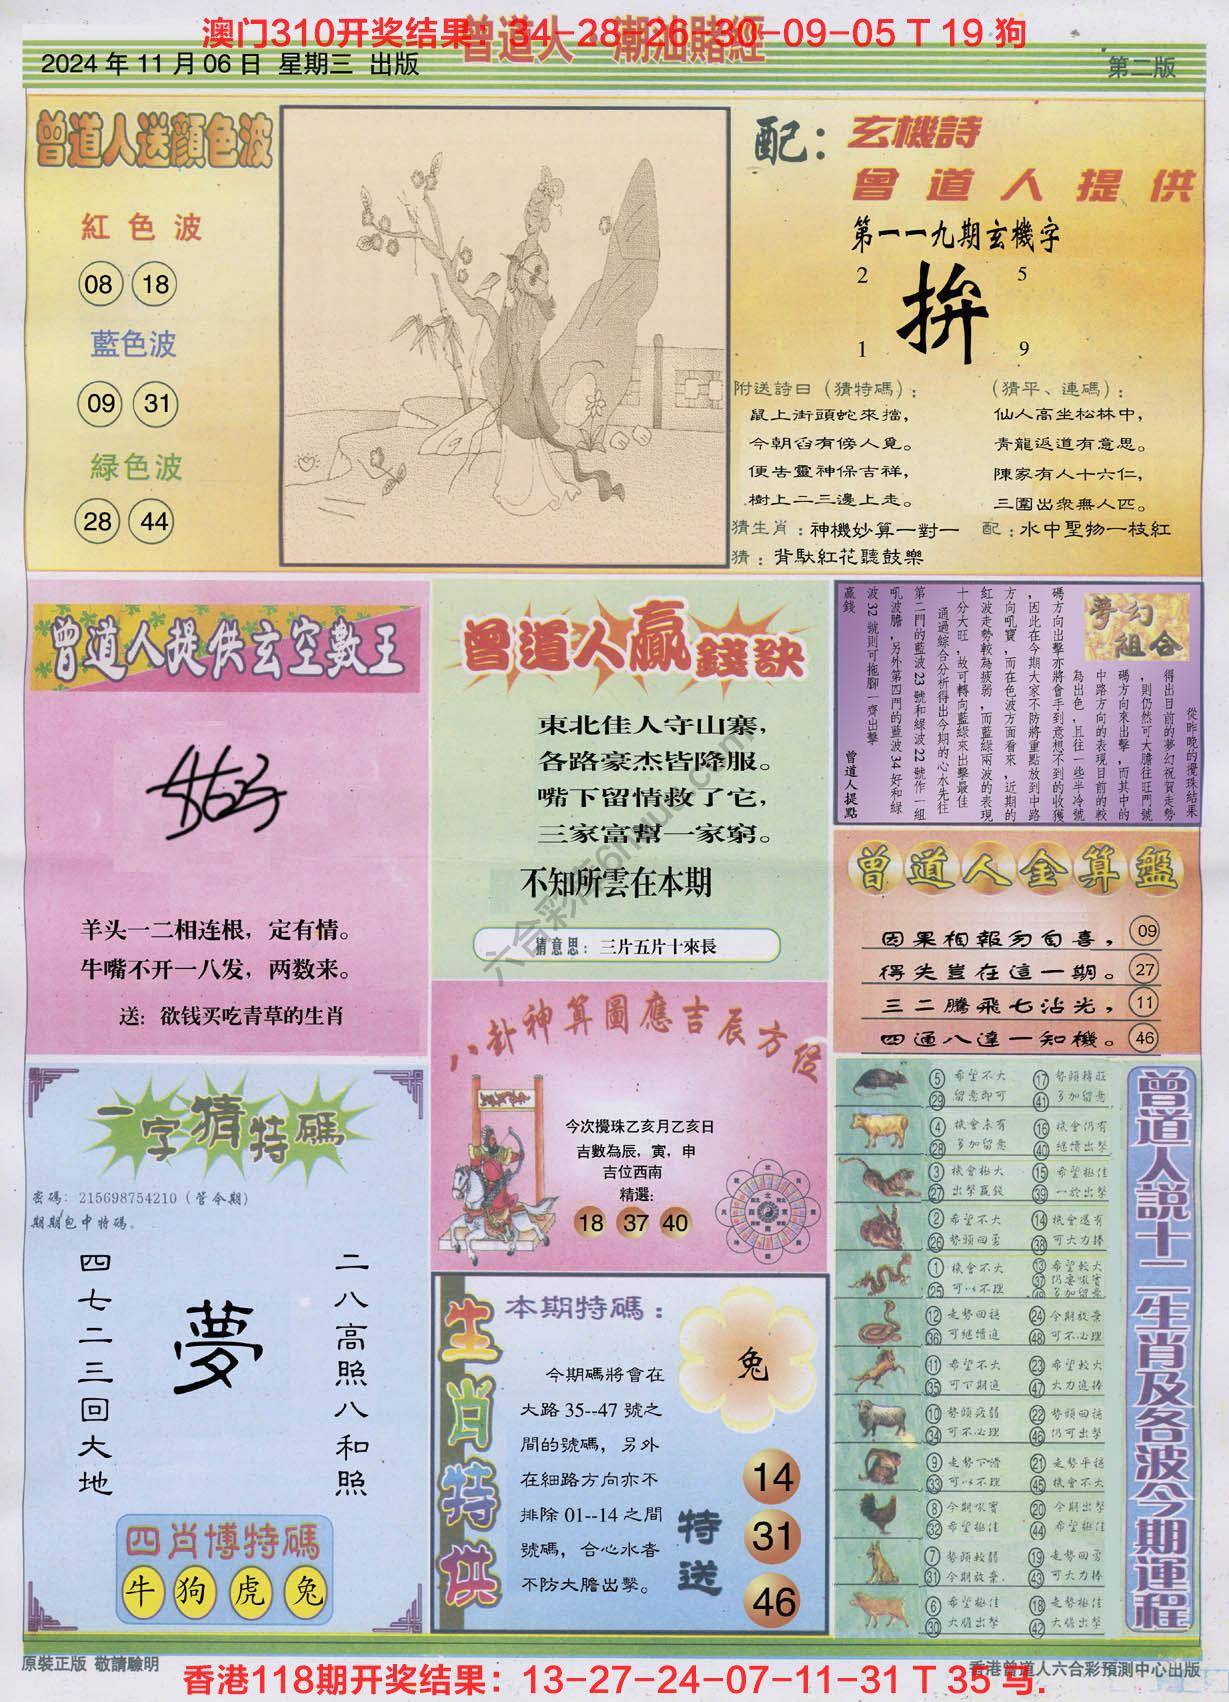 澳门310开奖结果：34-28-26-30-09-05 T 19 狗
曾道人 潮汕賭經
2024 年 11 月 06 日 星期三 出版
第二版
曾道人送顔色波
紅 色 波
08 18
藍色波
09 31
緑色波
28 44
配：玄機詩
曾 道 人 提 供
第一一九期玄機字
2 5
拚
1 9
附送詩曰（猜特碼）：
鼠上街頭蛇來擋，
今朝舀有傍人覓。
便告靈神保吉祥，
樹上二三邊上走。
（猜平、連碼）：
仙人高坐松林中，
青龍返道有意思。
陳家有人十六仁，
三圍出衆無人匹。
猜生肖：神機妙算一對一
配：水中聖物一枝紅
猜：背馱紅花聽鼓樂
曾道人提供玄空數王
羊头一二相连根，定有情。
牛嘴不开一八发，两数来。
送：欲钱买吃青草的生肖
曾道人贏錢訣
東北佳人守山寨，
各路豪杰皆降服。
嘴下留情救了它，
三家富幫一家窮。
不知所雲在本期
猜意思：三片五片十來長
夢幻組合
從昨晚的攪珠結果
得出目前的夢幻祝賀走勢
，則仍然可大膽往旺門號
碼方向來出擊，而其中的
中路方向的表現目前的較
為出色，且往一些半冷號
碼方向出擊亦將會手到意想不到的收獲
，因此在今期大家不防將重點放到中路
方向吼寶，而在色波方面看來，近期的
紅波走勢較為疲弱，而藍綠兩波的表現
十分大旺，故可轉向藍綠來出擊最佳
通過綜合分析得出今期的心水先往
第二門的藍波 23 號和綠波 22 號作一組
吼波膽，另外第四門的藍波 34 好和綠
波 32 號則可拖腳一齊出擊
贏錢
曾道人提點
曾道人金算盤
因果相報勿自喜， 09
得失豈在這一期。 27
三二騰飛七沾光， 11
四通八達一知機。 46
八卦神算圖應吉辰方位
今次攪珠乙亥月乙亥日
吉數為辰，寅，申
吉位西南
精選：
18 37 40
一字猜特碼
密碼：215698754210（管令期）
期期包中特碼。
四七二三回大地
夢
二八高照八和照
四肖博特碼
牛 狗 虎 兔
生肖特供
本期特碼：
兔
今期碼將會在
大路 35--47 號之
間的號碼，另外
在細路方向亦不
排除 01--14 之間
號碼，合心水者
不防大膽出擊。
特送
14
31
46
曾道人説十二生肖及各波今期運程
5 希望不大 17 勢頭精旺
29 留意即可 41 多加留意
4 機會未有 16 機會仍有
28 多加留意 40 繼續出擊
3 機會極大 15 希望極佳
27 出擊贏錢 39 一於出擊
2 希望不大 14 機會還有
26 勢頭回勇 38 可大力捧
1 機會不大 13 希望較大
25 可以不理 37 仍要吼實
49 多加留意
12 走勢回穩 24 今期放棄
36 可繼續追 48 可不必理
11 希望不大 23 希望較大
35 可下期追 47 大力追捧
10 勢頭疲弱 22 勢頭回穩
34 可不必理 46 仍可出擊
9 走勢下滑 21 走勢平穩
33 可以不理 45 機會不大
8 今期吼實 20 今期出擊
32 希望極佳 44 希望極佳
7 勢頭較弱 19 走勢回勇
31 今期放棄. 43 可大力捧
6 希望極佳 18 走勢極佳
30 大膽出擊 42 大膽出擊
六合彩库6hkuo.com
原裝正版 敬請驗明
香港曾道人六合彩預測中心出版
香港118期开奖结果：13-27-24-07-11-31 T 35 马.